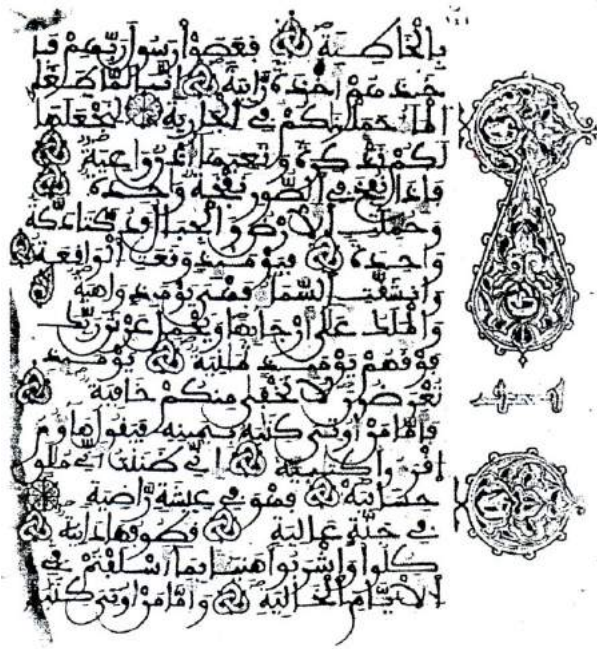 بِالْخَاطِيَةِ فَعَصَوْا رَسُولَ رَبِّهِمْ فَأَ
خَذَهُمْ أَخْذَةً رَّابِيَةً إِنَّا لَمَّا طَغَا
الْمَاءُ حَمَلْنَاكُمْ فِي الْجَارِيَةِ لِنَجْعَلَهَا
لَكُمْ تَذْكِرَةً وَتَعِيَهَا أُذُنٌ وَاعِيَةٌ
فَإِذَا نُفِخَ فِي الصُّورِ نَفْخَةٌ وَاحِدَةٌ
وَحُمِلَتِ الْأَرْضُ وَالْجِبَالُ فَدُكَّتَا دَكَّةً
وَاحِدَةً فَيَوْمَئِذٍ وَقَعَتِ الْوَاقِعَةُ
وَانشَقَّتِ السَّمَاءُ فَهْيَ يَوْمَئِذٍ وَاهِيَةٌ
وَالْمَلَكُ عَلَى أَرْجَائِهَا وَيَحْمِلُ عَرْشَ رَبِّكَ
فَوْقَهُمْ يَوْمَئِذٍ ثَمَٰنِيَةٌ يَوْمَئِذٍ
تُعْرَضُونَ لَا تَخْفَى مِنكُمْ خَافِيَةٌ
فَأَمَّا مَنْ أُوتِيَ كِتَٰبَهُ بِيَمِينِهِ فَيَقُولُ هَاؤُمُ
اقْرَءُوا كِتَٰبِيَهْ إِنِّي ظَنَنتُ أَنِّي مُلَٰقٍ
حِسَابِيَهْ فَهْوَ فِي عِيشَةٍ رَّاضِيَةٍ
فِي جَنَّةٍ عَالِيَةٍ قُطُوفُهَا دَانِيَةٌ
كُلُوا وَاشْرَبُوا هَنِيئًا بِمَا أَسْلَفْتُمْ فِي
الْأَيَّامِ الْخَالِيَةِ وَأَمَّا مَنْ أُوتِيَ كِتَٰبَهُ